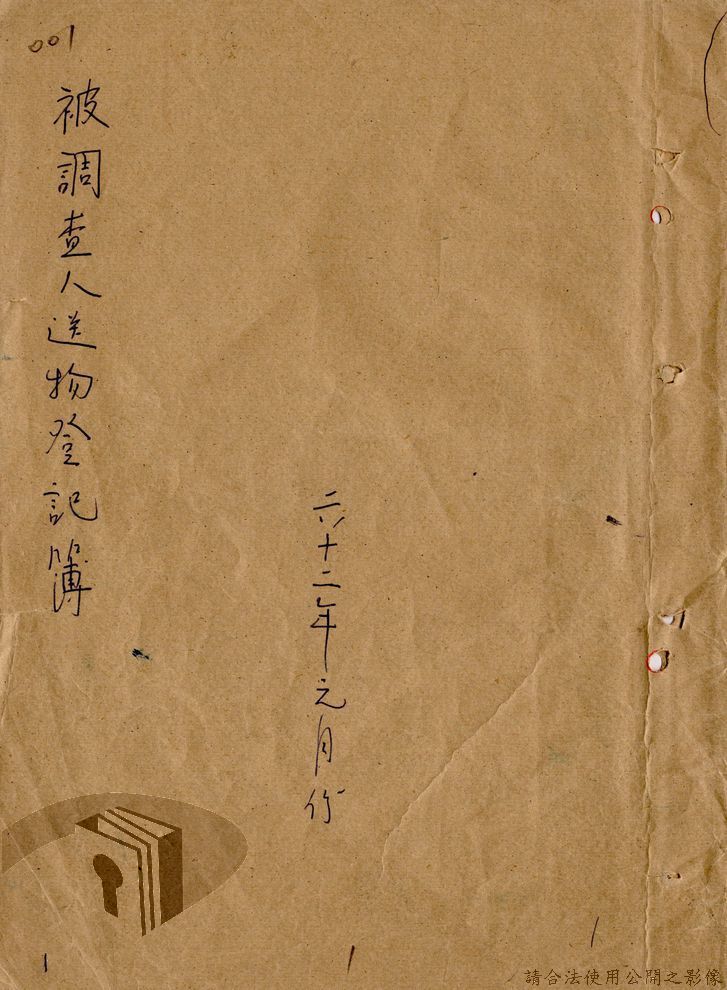 001
被調查人送物登記簿
六十二年元月份
請合法使用公開之影像